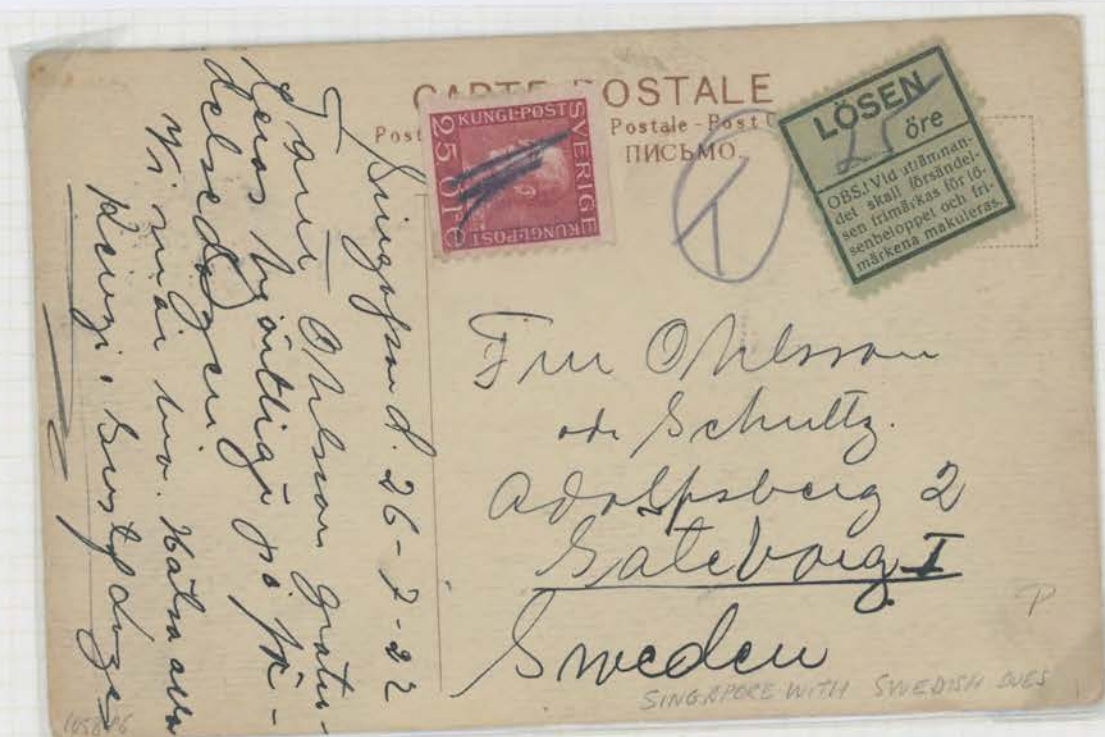 CARTE POSTALE
Post Postale - Post
ПИСЬМО
SVERIGE
KUNGL-POST
25 ÖRE
KUNGL-POST
T
LÖSEN
25 öre
OBS.! Vid utlämnan-
det skall försändel-
sen frimärkas för lö-
senbeloppet och fri-
märkena makuleras.
Singapore d. 26-7-22
Ohlson gratu-
leras hjärtligt på fö-
delsedagen.
Vi mår bra. Hälsa alla
Fru Ohlsson
Schultz.
Adolfsberg 2
Göteborg I
Sweden
P
SINGAPORE WITH SWEDISH DUES